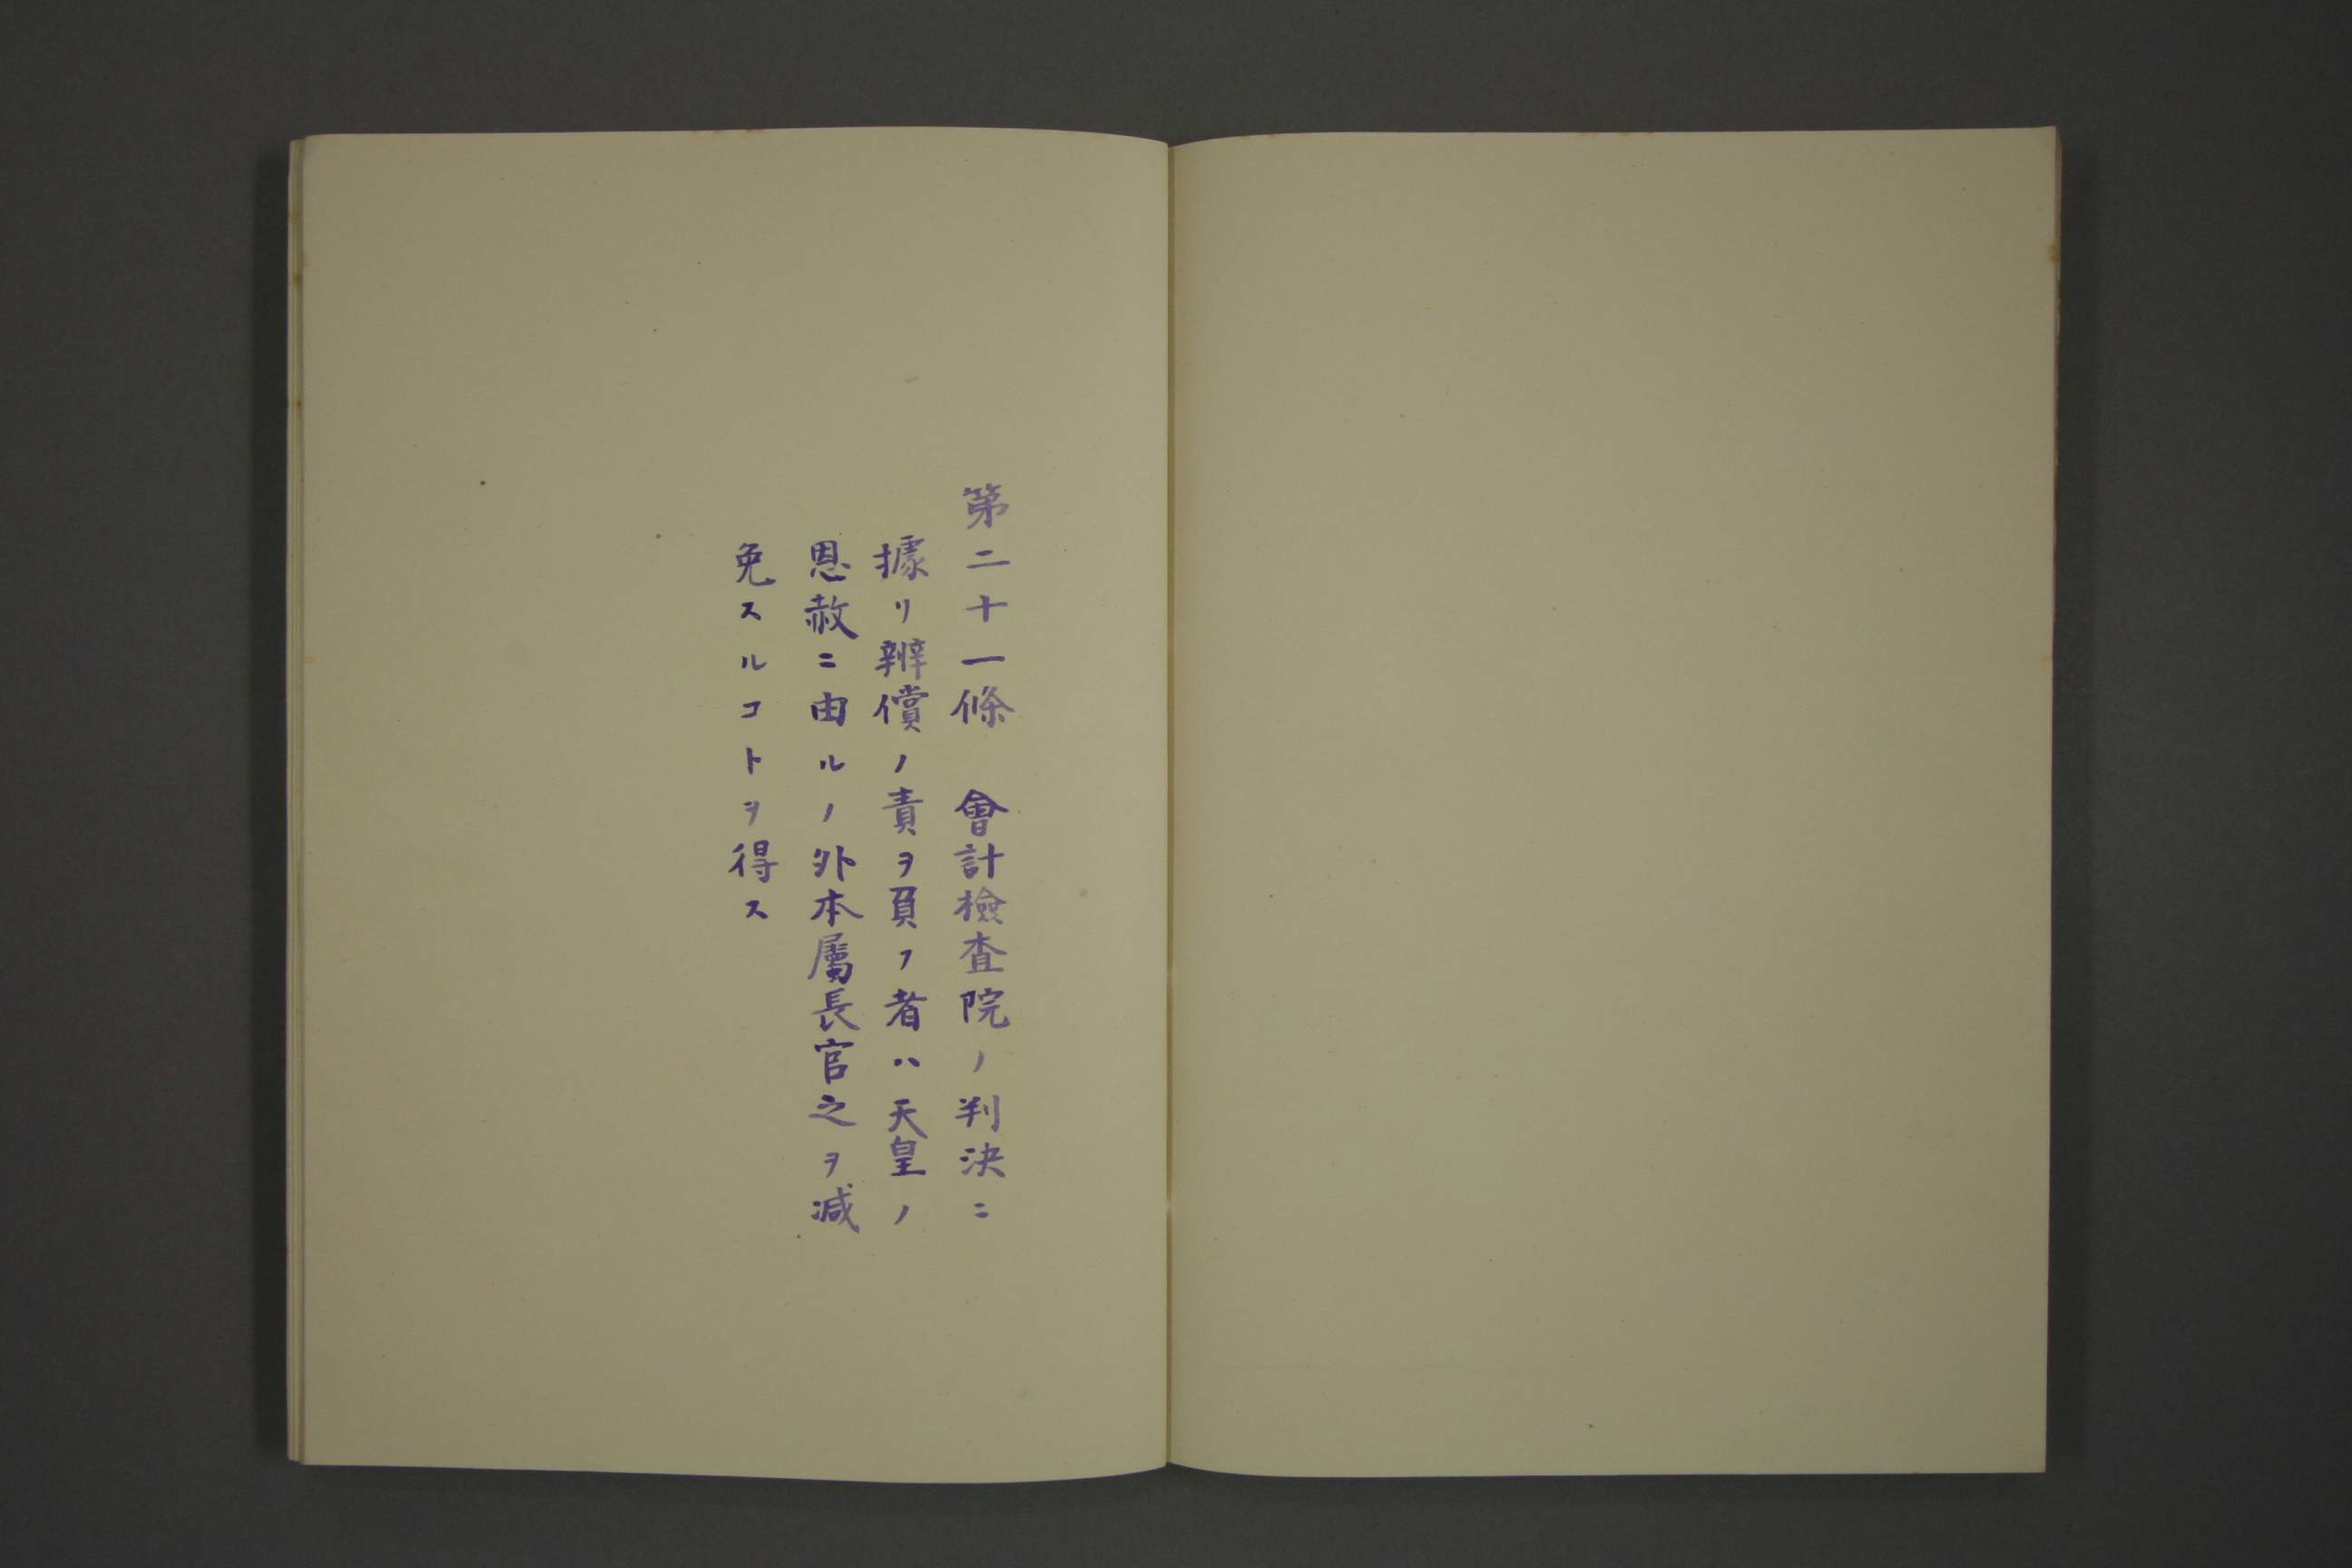 第二十一條　會計檢査院ノ判決ニ
據リ辨償ノ責ヲ負フ者ハ天皇ノ
恩赦ニ由ルノ外本屬長官之ヲ減
免スルコトヲ得ス